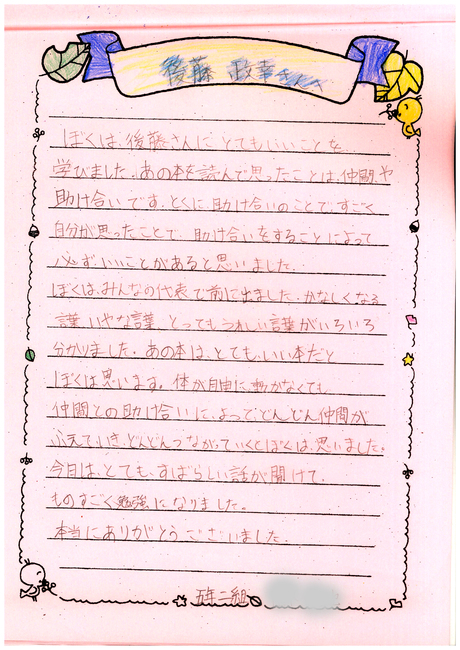 後藤 政幸さんへ
ぼくは、後藤さんに とてもいいことを
学びました。あの本を読んで思ったことは、仲間や
助け合いです。とくに、助け合いのことで、すごく
自分が思ったことで、助け合いをすることによって
必ず、いいことがあると思いました。
ぼくは、みんなの代表で前に出ました。かなしくなる
言葉、いやな言葉、とってもうれしい言葉がいろいろ
分かりました。あの本は、とても、いい本だと
ぼくは思います。体が自由に、動かなくても
仲間との助け合いに、よって、どんどん仲間が
ふえていき、どんどんつながっていくとぼくは、思いました。
今日は、とても、すばらしい話が聞けて、
ものすごく勉強になりました。
本当にありがとうございました。
五年二組